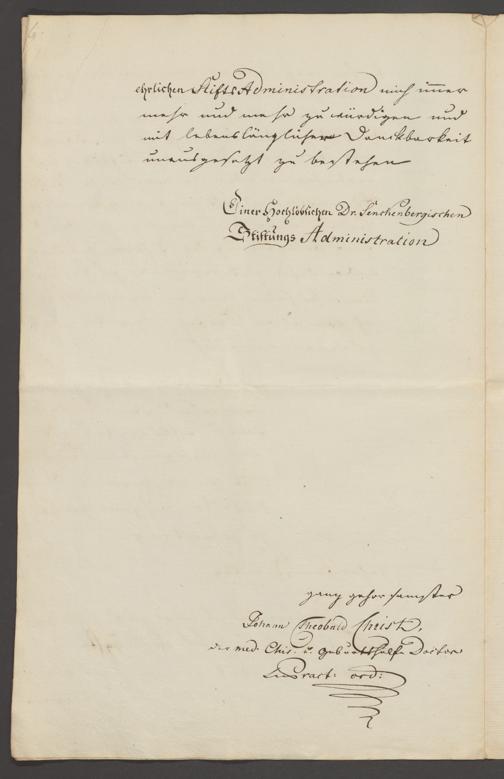 ehrlichen Stifts Administration mich immer
mehr und mehr zu würdigen und
mit lebenslänglicher Danckbarkeit
unausgesetzt zu bestehen
Einer Hochlöblichen Dr. Senckenbergischen
Stiftungs Administration
ganz gehorsamster
Johann Theobald Christ,
der med. Chir. u. Geburtshülfe Doctor
Pract: ord: